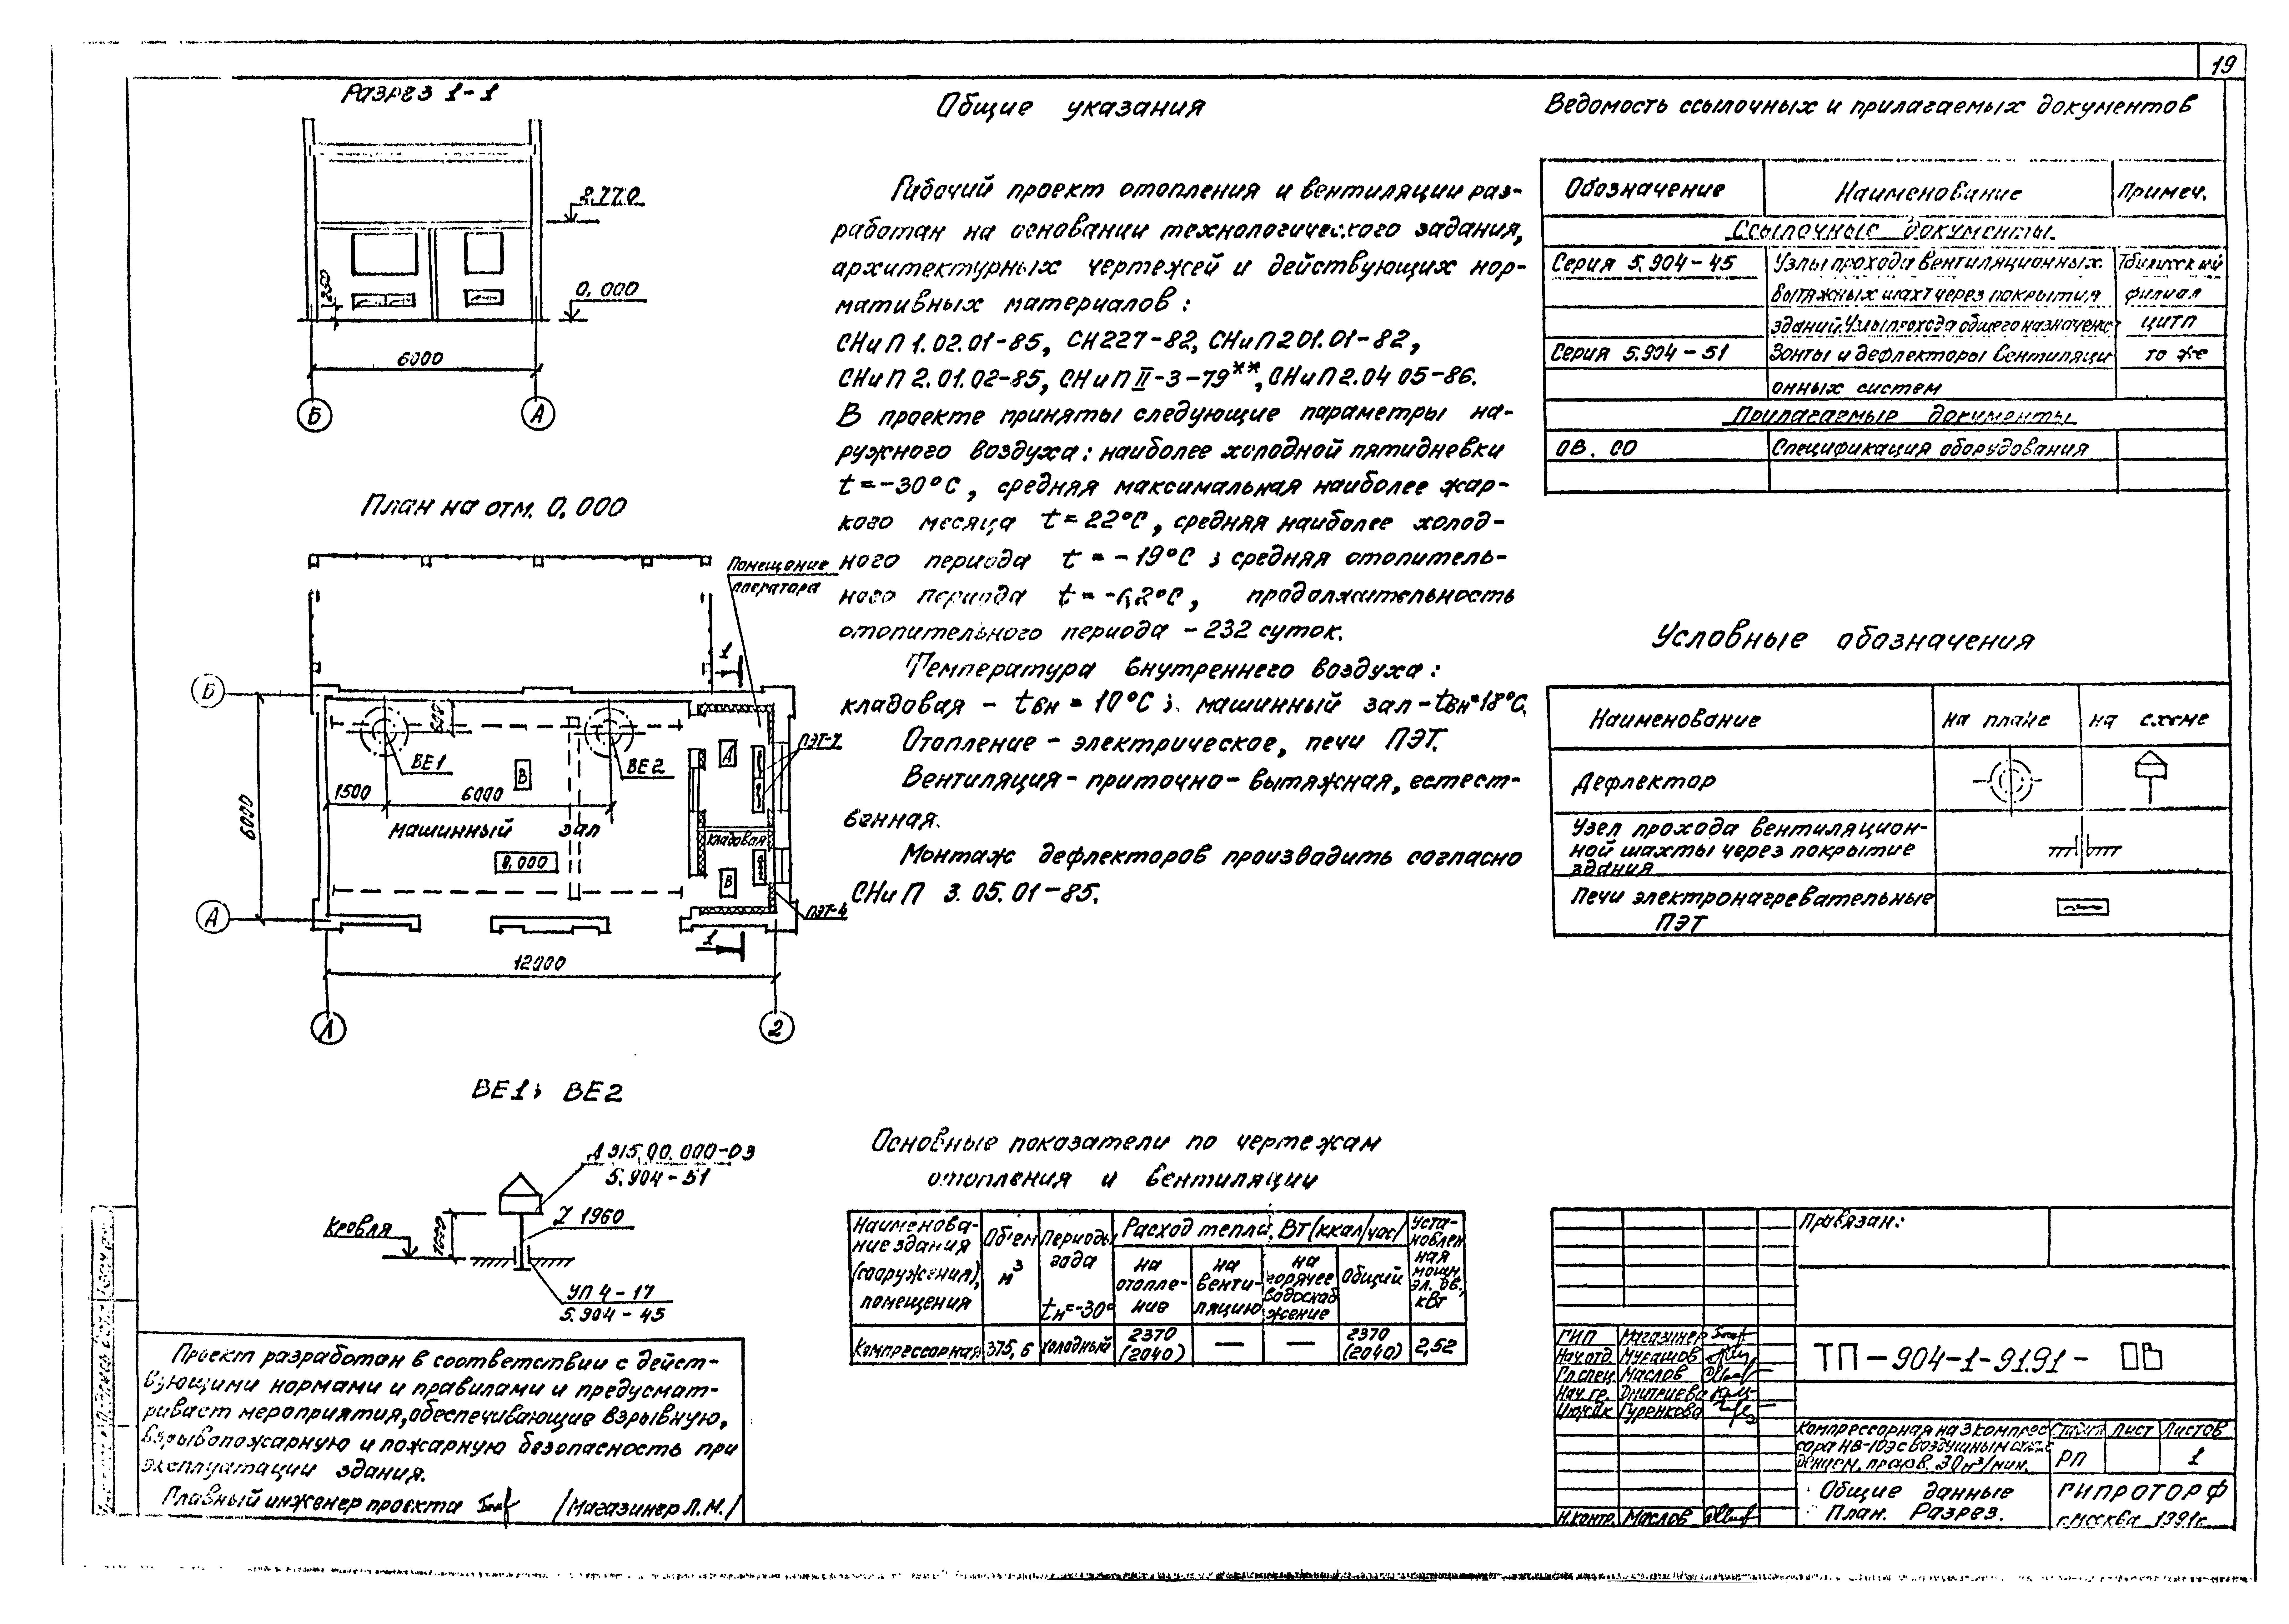 19
Разрез 1-1
2.770
0.000
250
6000
Б
А
План на отм. 0.000
Помещение
оператора
1
Б
600
ВЕ1
ВЕ2
В
Д
ПЭТ-7
1500
6000
6000
машинный зал
кладовая
0.000
В
А
ПЭТ-4
1
12000
1
2
ВЕ1; ВЕ2
Д 315.00.000-03
5.904-51
1000
1960
Кровля
УП 4-17
5.904-45
Проект разработан в соответствии с дейст-
вующими нормами и правилами и предусмат-
ривает мероприятия, обеспечивающие взрывную,
взрывопожарную и пожарную безопасность при
эксплуатации здания.
Главный инженер проекта /Магазинер Л.М./
Общие указания
Рабочий проект отопления и вентиляции раз-
работан на основании технологического задания,
архитектурных чертежей и действующих нор-
мативных материалов:
СНиП 1.02.01-85, СН227-82, СНиП 2.01.01-82,
СНиП 2.01.02-85, СНиП II-3-79**, СНиП 2.04 05-86.
В проекте приняты следующие параметры на-
ружного воздуха: наиболее холодной пятидневки
t=-30°С, средняя максимальная наиболее жар-
кого месяца t=22°С, средняя наиболее холод-
ного периода t=-19°С; средняя отопитель-
ного периода продолжительность
отопительного периода -232 суток.
Температура внутреннего воздуха:
кладовая - tвн = 10°С; машинный зал - tвн=18°С.
Отопление - электрическое, печи ПЭТ.
Вентиляция - приточно-вытяжная, естест-
венная.
Монтаж дефлекторов производить согласно
СНиП 3.05.01-85.
Основные показатели по чертежам
отопления и вентиляции
Наименова-
ние здания
(сооружения),
помещения
Объем
м³
Периоды
года
tн=-30°
Расход тепла, Вт (ккал/час)
на
отопле-
ние
на
венти-
ляцию
на
горячее
водоснаб
жение
Общий
Уста-
новлен
ная
мощн.
эл. дв.,
кВт
Компрессорная 375,6 холодный 2370 (2040) — — 2370 (2040) 2,52
Ведомость ссылочных и прилагаемых документов
Обозначение Наименование Примеч.
Ссылочные документы
Серия 5.904-45 Узлы прохода вентиляционных Тбилисский
вытяжных шахт через покрытия филиал
зданий. Узлы прохода общего назначения ЦИТП
Серия 5.904-51 Зонты и дефлекторы вентиляци то же
онных систем
Прилагаемые документы
ОВ. СО Спецификация оборудования
Условные обозначения
Наименование на плане на схеме
Дефлектор
Узел прохода вентиляцион-
ной шахты через покрытие
здания
Печи электронагревательные
ПЭТ
Привязан:
ГИП Магазинер
Нач.отд. Мурашов
Гл.спец. Маслов
Нач.гр. Дмитриева
Инж.IIк Гуренкова
Н.контр. Маслов
ТП-904-1-91.91- ОВ
Компрессорная на 3 компрес
сора НВ-10Э с воздушным охлаж
дением, произв. 30 м³/мин.
Стадия Лист Листов
РП 1
Общие данные
План. Разрез.
ГИПРОТОРФ
г.Москва 1991г.